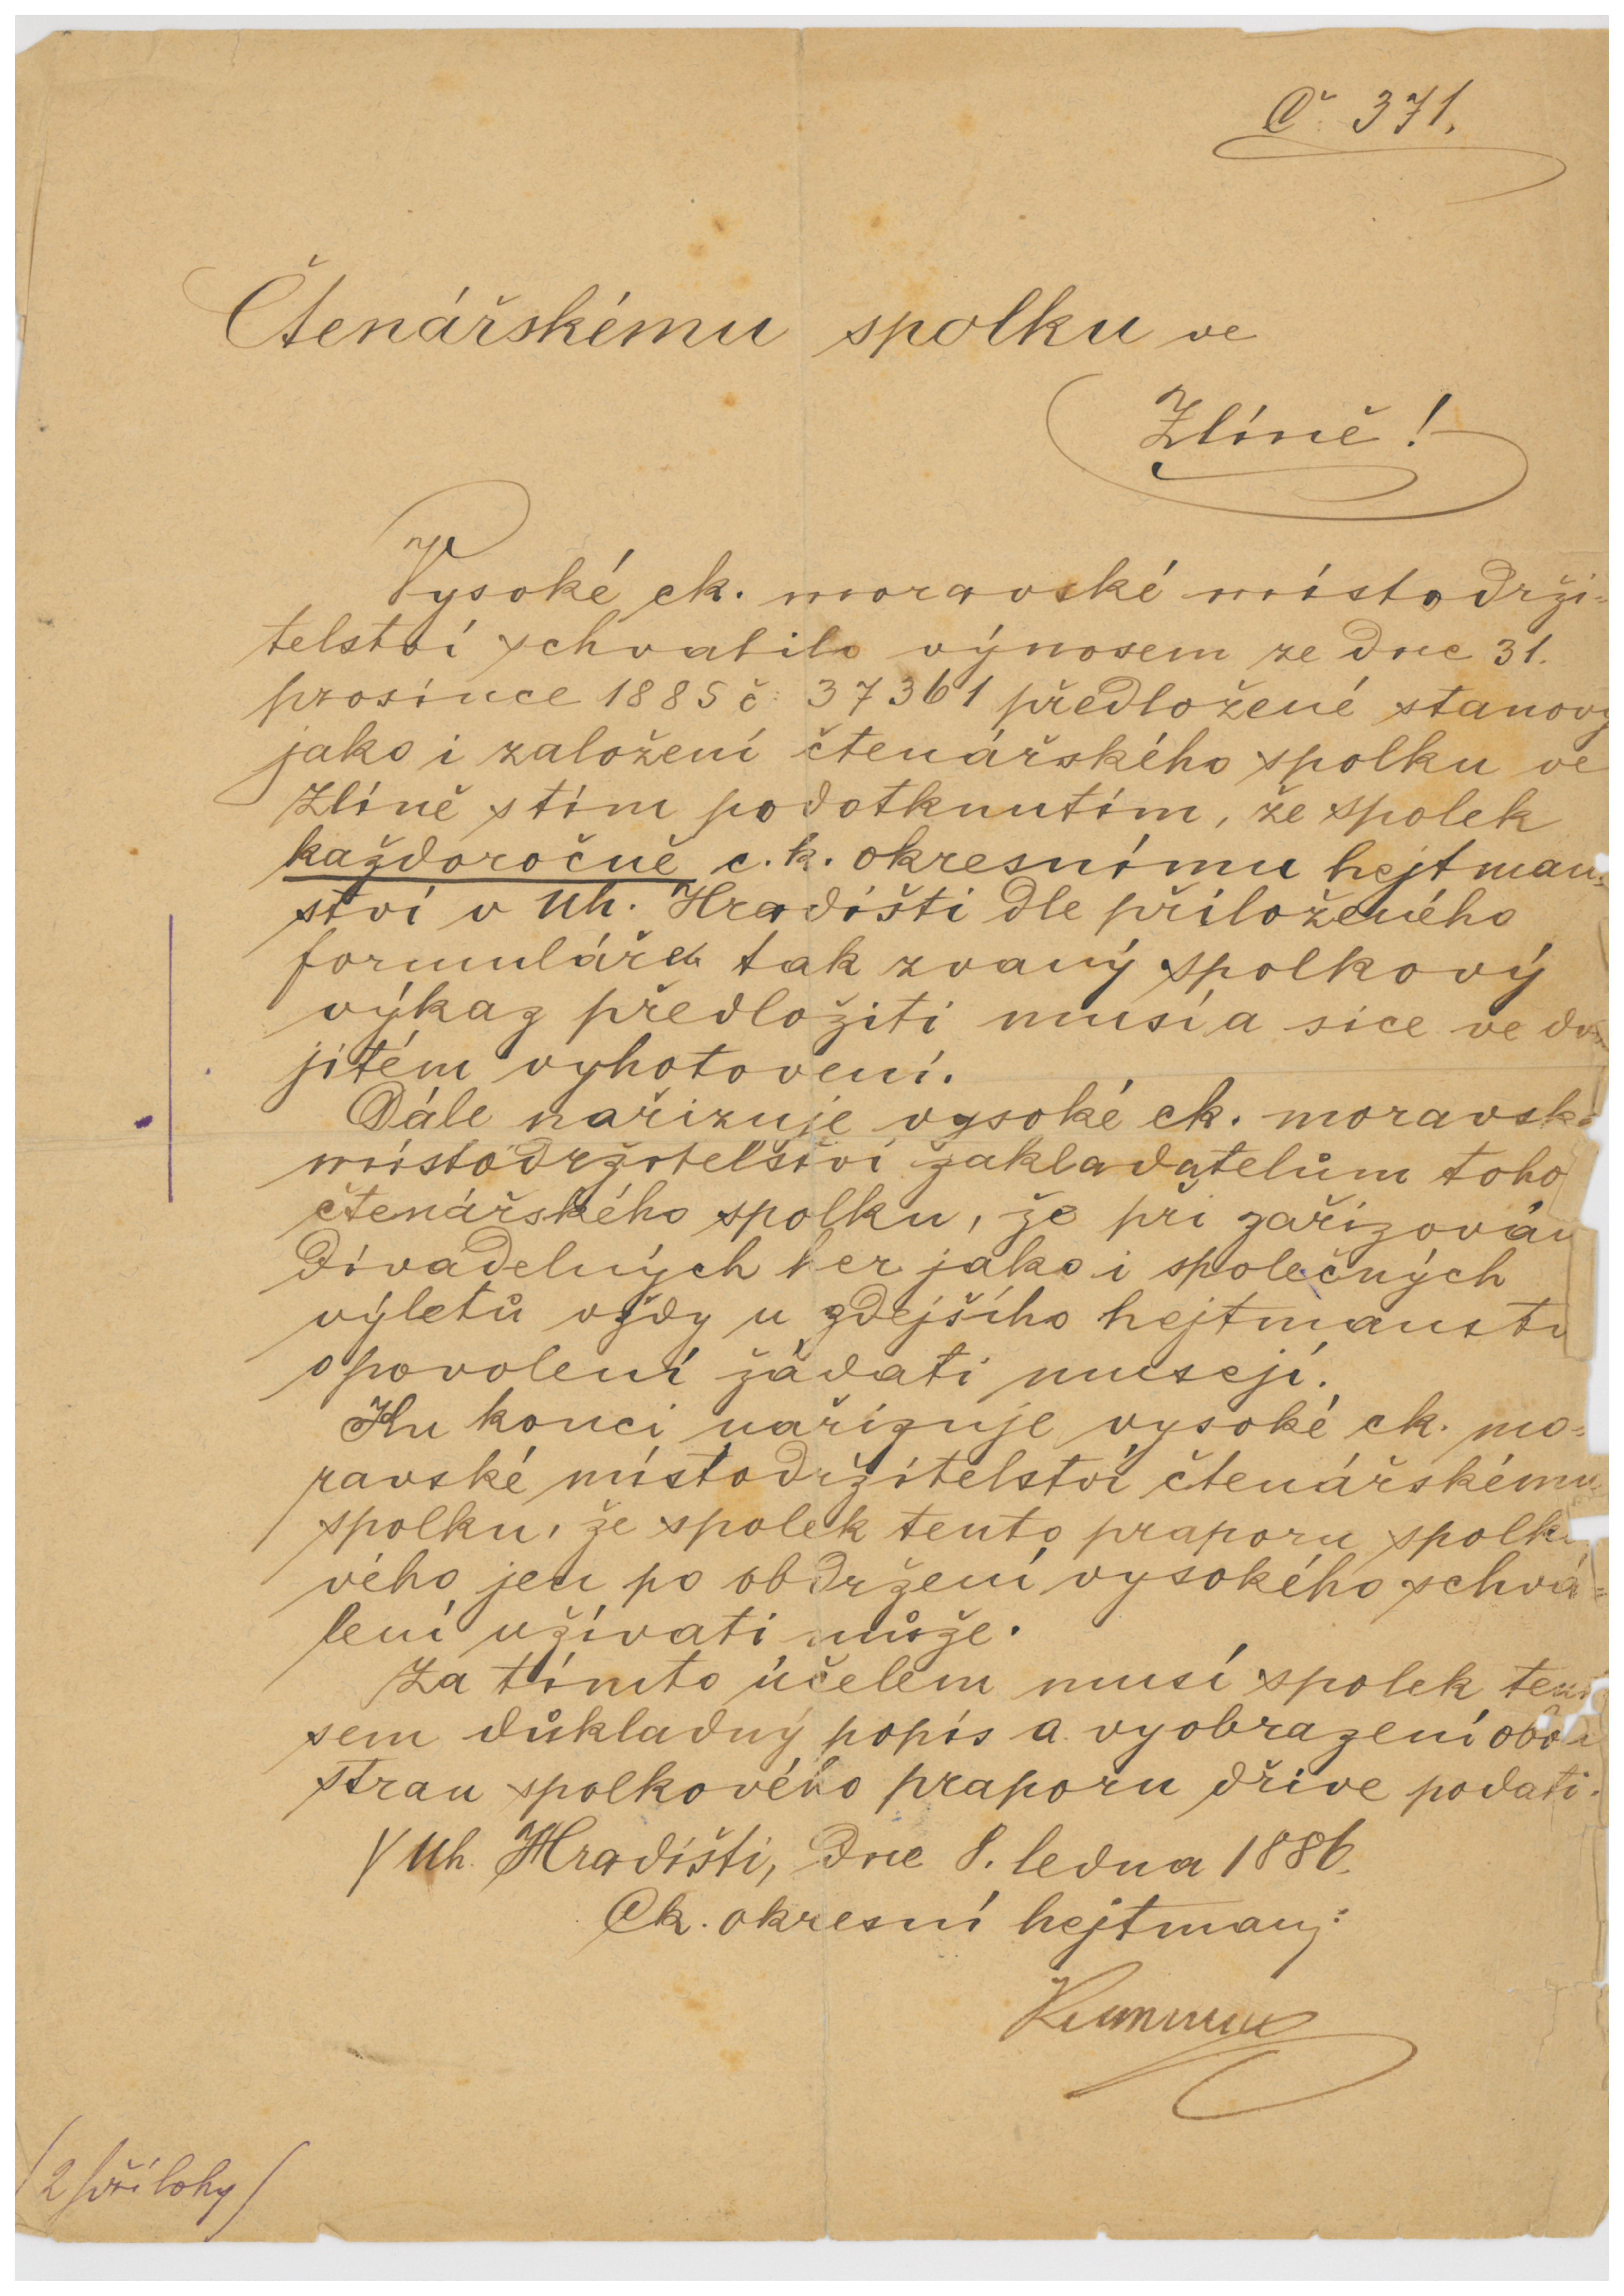 Č. 371.
Čtenářskému spolku ve
Zlíně!
Vysoké ck. moravské místodrži-
telství schvatilo výnosem ze dne 31.
prosince 1885 č: 37361 předložené stanovy
jako i založení čtenářského spolku ve
Zlíně s tím podotknutím, že spolek
každoročně c. k. okresnímu hejtman-
ství v Uh. Hradišti dle přiloženého
formuláře tak zvaný spolkový
výkaz předložiti musí a sice ve dvo
jitém vyhotovení.
Dále nařizuje vysoké ck. moravské
místodržitelství zakladatelům toho
čtenářského spolku, že při zařizován
divadelných her jako i společných
výletů vždy u zdejšího hejtmanstv
o povolení žádati musejí.
Ku konci nařizuje vysoké ck. mo-
ravské místodržitelství čtenářskému
spolku, že spolek tento praporu spolko
vého jen po obdržení vysokého schvá-
lení užívati může.
Za tímto účelem musí spolek tento
sem důkladný popis a vyobrazení obou
stran spolkového praporu dříve podati.
V Uh. Hradišti, dne 8. ledna 1886.
Ck. okresní hejtman:
/2 přílohy/